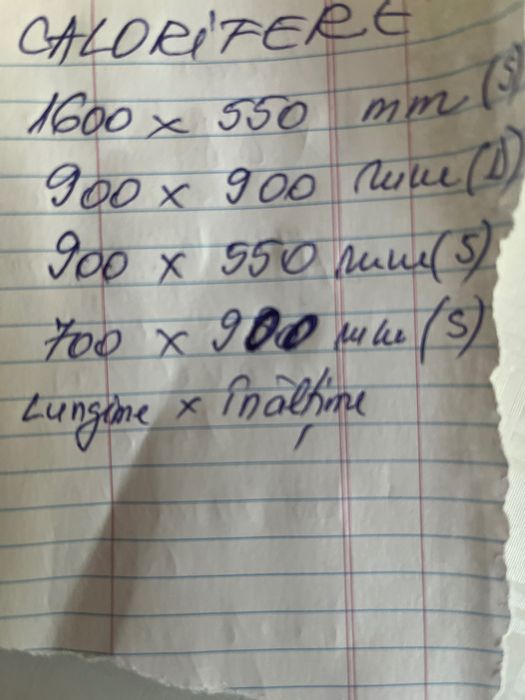 CALORIFERE
1600 x 550 mm (S)
900 x 900 mm (D)
900 x 550 mm (S)
700 x 900 mm (S)
Lungime x înălțime